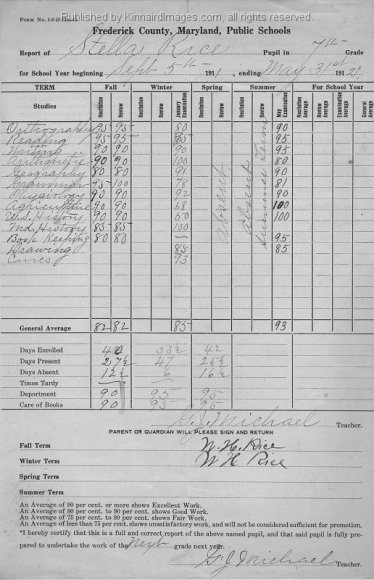 FORM No. 1-8-2
Published by KinnairdImages.com, all rights reserved
Frederick County, Maryland, Public Schools
Report of Stella Rice Pupil in 7th Grade
for School Year beginning Sept 5th 1911, ending May 31st 1912
TERM Fall Winter Spring Summer For School Year
Studies Recitation Review Recitation Review January Examination Recitation Review Recitation Review May Examination Recitation Average Review Average Examination Average General Average
Orthography 95 95 80 90
Reading 95 95 85 95
Writing 90 90 90 95
Arithmetic 90 90 100 80
Geography 80 80 91 90
Grammar 75 100 78 81
Physiology 90 90 92 90
Agriculture 90 90 68 100
U.S. History 90 90 50 100
Md. History 85 85 100
Book Keeping 80 80 — 95
Drawing 85 85
Civics 93
absent absent summer term
General Average 82 82 85 93
Days Enrolled 40 33½ 42
Days Present 27½ 47 25½
Days Absent 12½ 6 16½
Times Tardy
Deportment 90 95 95
Care of Books 90 95 95
G. J. Michael Teacher.
PARENT OR GUARDIAN WILL PLEASE SIGN AND RETURN
Fall Term W. H. Rice
Winter Term W H Rice
Spring Term
Summer Term
An Average of 90 per cent. or more shows Excellent Work.
An Average of 80 per cent. to 90 per cent. shows Good Work.
An Average of 75 per cent. to 80 per cent. shows Fair Work.
An Average of less than 75 per cent. shows unsatisfactory work, and will not be considered sufficient for promotion.
"I hereby certify that this is a full and correct report of the above named pupil, and that said pupil is fully pre-
pared to undertake the work of the Next grade next year.
G. J. Michael Teacher.